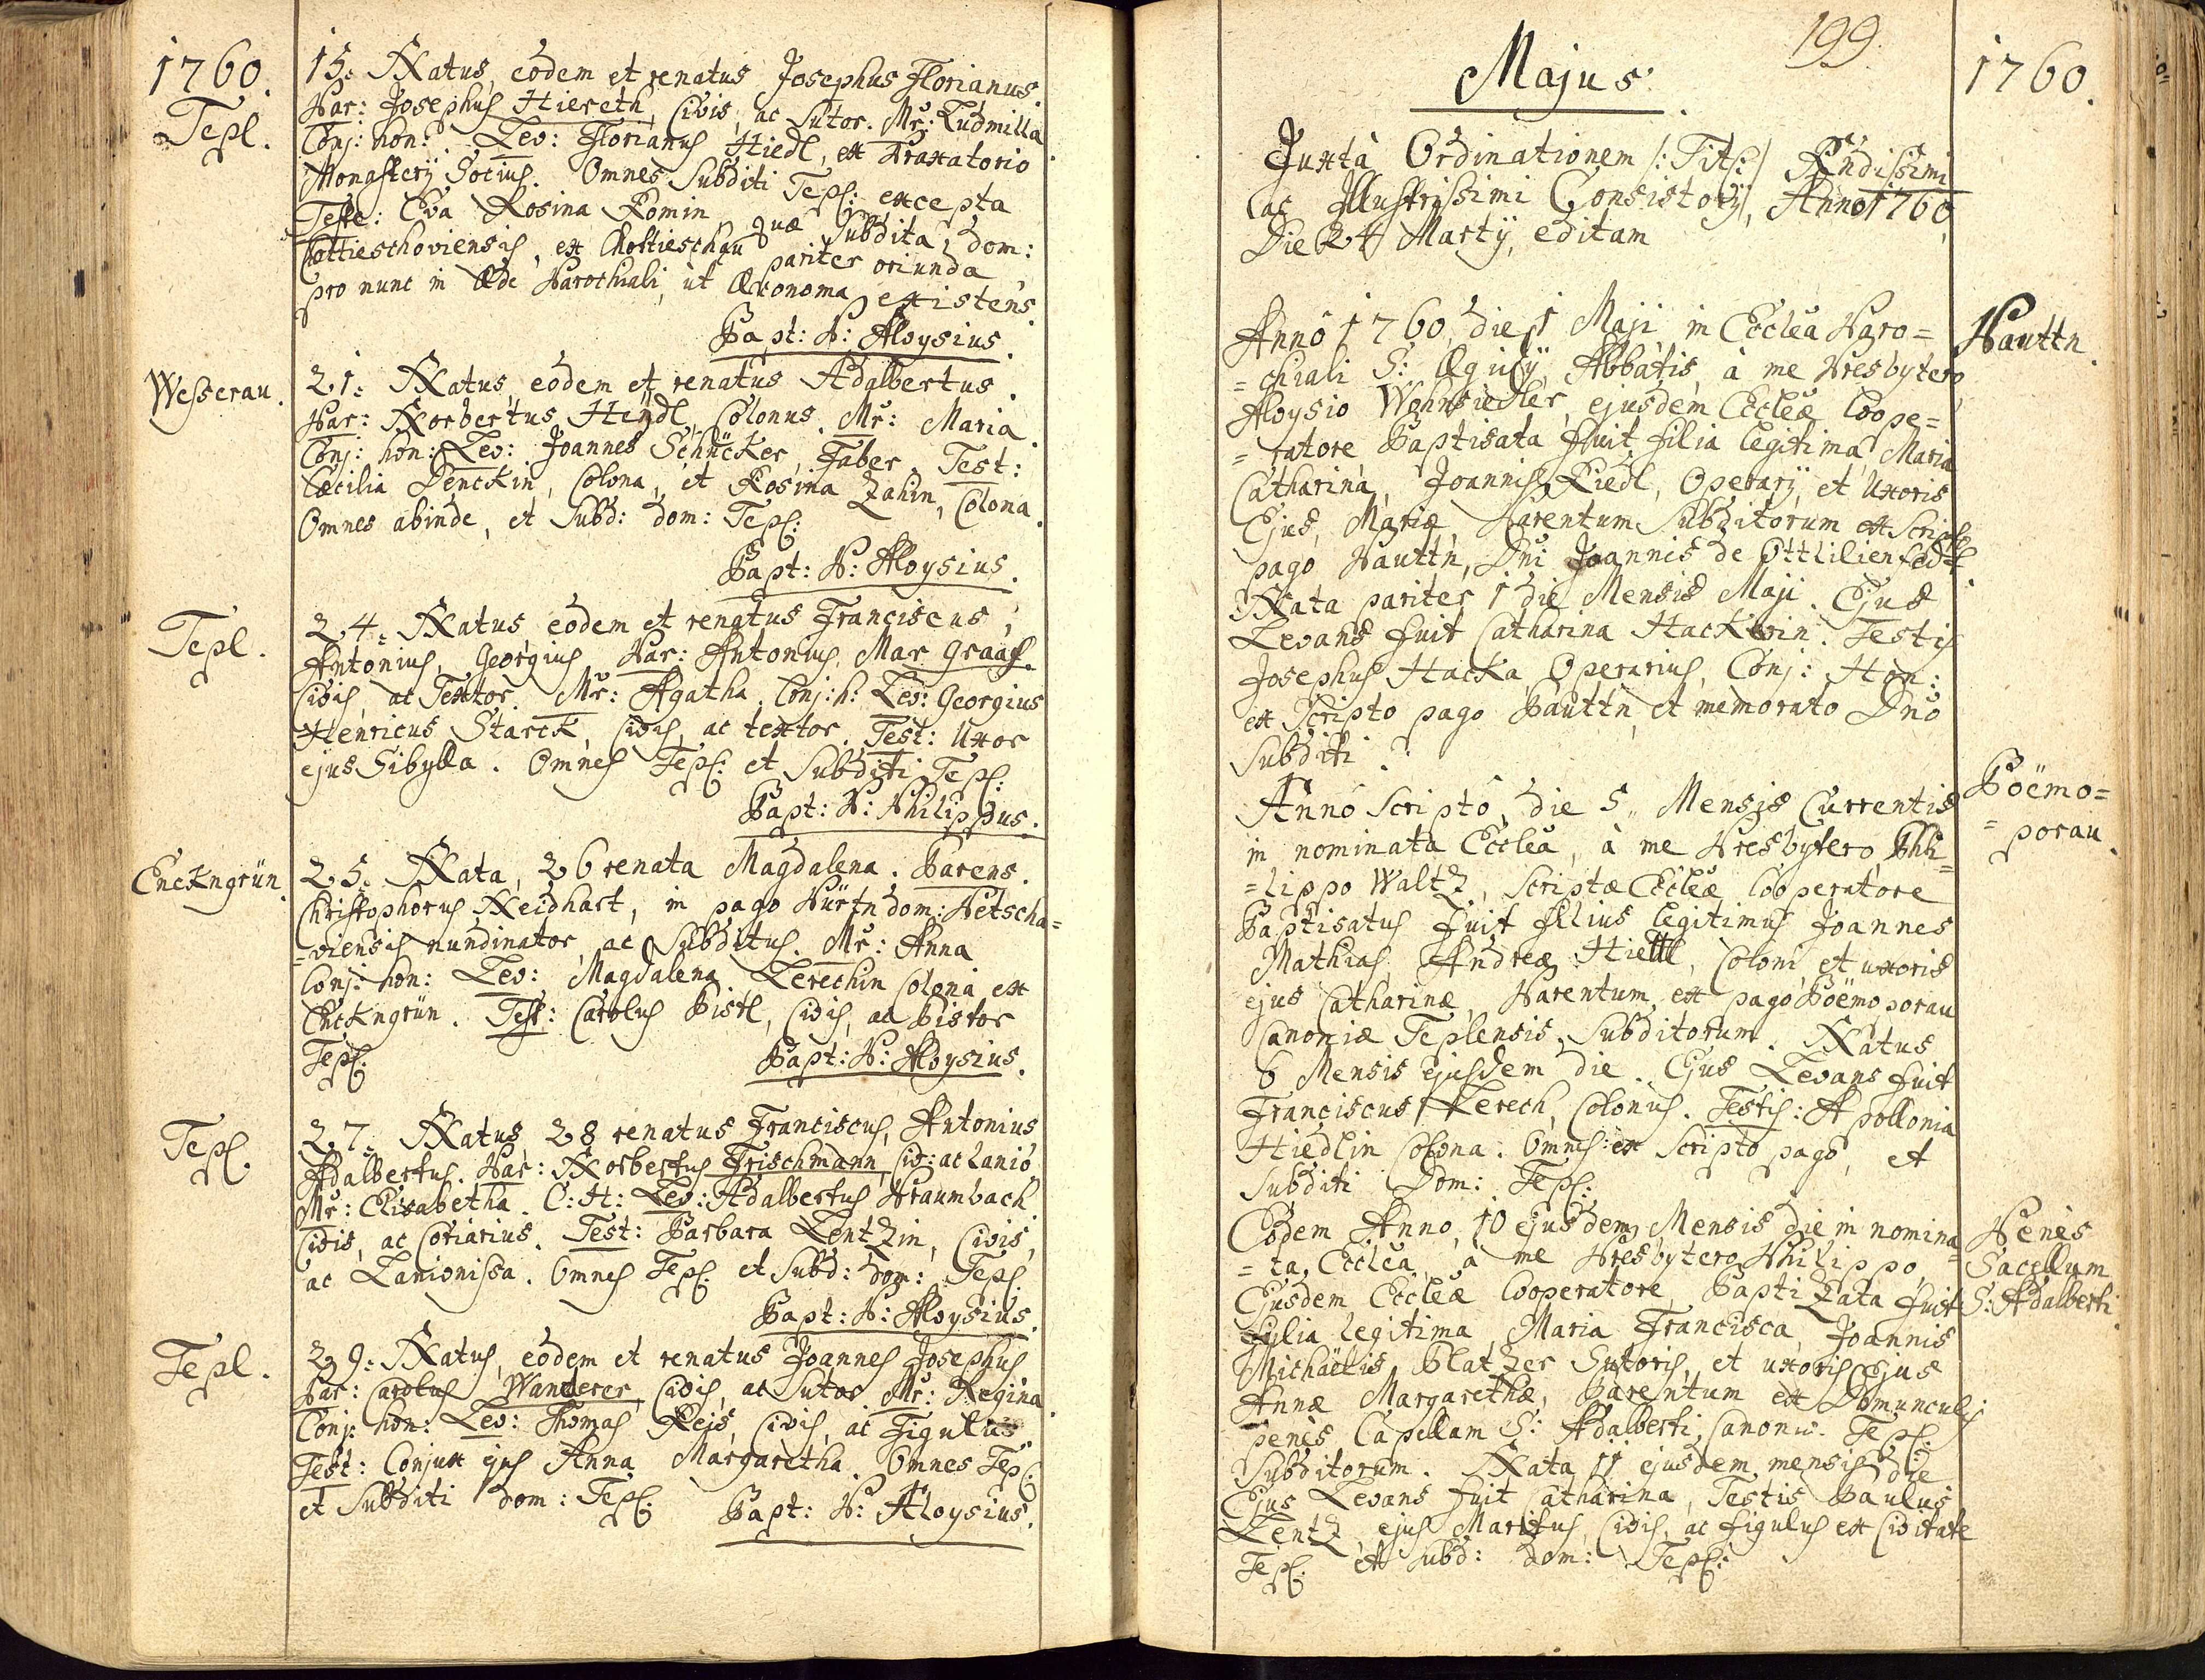 1760.
Tepl.
15. Natus, eodem et renatus Josephus Florianus.
Par: Josephus Hiereth, Civis, ac Sutor. Mr: Ludmilla
Conj: hon: Lev: Florianus Hiedl, ex Braxatorio
Monastery Socius. Omnes Subditi Tepl: excepta
Teste: Eva Rosina Romin quæ Subdita, dom:
Chottieschoviensis, ex Chottieschau pariter oriunda
pro nunc in Æde Parochiali, ut Œconoma existens.
Bapt: P: Aloysius.
Wesserau.
21. Natus, eodem et renatus Adalbertus.
Par: Norbertus Heÿdl, Colonus. Mr: Maria.
Conj: hon: Lev: Joannes Schucker, Faber. Test:
Cæcilia Denckin, Colona, et Rosina Zahin, Colona.
Omnes abinde, et Subd: dom: Tepl:
Bapt: P: Aloysius.
Tepl.
24. Natus, eodem et renatus Franciscus,
Antonius, Georgius Par: Antonius Mar graaf.
Civis, ac Textor. Mr: Agatha. Conj: h: Lev: Georgius
Henricus Starck, Civis, ac textor. Test: Uxor
ejus Sibylla. Omnes Tepl: et Subditi Tepl:
Bapt: P: Philippus.
Enckngrün.
25. Nata, 26 renata Magdalena. Parens.
Christophorus Neidhart, in pago Pürtn dom: Petscha=
=viensis nundinator, ac Subditus. Mr: Anna
Conj: hon: Lev: Magdalena Lerechin Colona ex
Enckngrün. Test: Carolus Pistl, Civis, ac Pistor
Tepl:
Bapt: P: Aloysius.
Tepl.
27. Natus, 28 renatus Franciscus, Antonius
Adalbertus. Par: Norbertus Frischmann, Civ: ac Lanio
Mr: Elisabetha. C: H: Lev: Adalbertus Praumbach.
Civis, ac Coriarius. Test: Barbara Lentzin, Civis,
ac Lanionissa. Omnes Tepl: et Subd: dom: Tepl:
Bapt: P: Aloysius.
Tepl.
29. Natus, eodem et renatus Joannes Josephus
Par: Carolus Wanderer, Civis, ac Sutor Mr: Regina.
Conj: hon: Lev: Thomas Reis, Civis, ac Figulus
Test: Conjux ejus Anna Margaretha. Omnes Tepl:
et Subditi dom: Tepl: Bapt: P: Aloysius.
199.
Majus.
1760.
Juxta Ordinationem /: Titl: / Rndissimi
ac Illustrissimi Consistory, Anno 1760,
Die 24 Marty, editam
Pauttn.
Anno 1760, die 1 Maji in Ecclea Paro=
=chiali S: Ægidÿ Abbatis, à me Presbytero
Aloysio Wohnsiedler, ejusdem Eccleæ Coope=
=ratore Baptisata fuit filia legitima Maria
Catharina, Joannis Riedl, Operarÿ, et Uxoris
Ejus, Mariæ, Parentum Subditorum ex Scripto
pago Pauttn, Dni Joannis de Ottilienfeldt.
Nata pariter 1 die Mensis Maji. Ejus
Levans fuit Catharina Hackerin. Testis
Josephus Hacka, Operarius, Conj: Hon:
ex Scripto pago Pauttn, et memorato Dno
Subditi.
Boëmo=
=porau.
Anno Scripto, die 5 Mensis Currentis
in nominata Ecclea, à me Presbytero Phi=
=lippo Waltz, Scriptæ Eccleæ Cooperatore
Baptisatus fuit filius legitimus Joannes
Mathias, Andreæ Hiettl, Coloni et uxoris
ejus Catharinæ, Parentum ex pago Boëmoporau
Canoniæ Teplensis, Subditorum. Natus
6 Mensis ejusdem die. Ejus Levans fuit
Franciscus Lerech, Colonus. Testis: Apollonia
Hiedlin Colona. Omnes ex Scripto pago, et
Subditi Dom: Tepl:
Penès
Sacellum
S: Adalberti
Eodem Anno, 10 ejusdem Mensis die in nomina
=ta Ecclea, à me Presbytero Philippo,
Ejusdem Eccleæ Cooperatore, Baptizata fuit
Filia legitima Maria Francisca, Joannis
Michaëlis Platzer Sutoris, et uxoris Ejus
Annæ Margarethæ, Parentum ex Domunculis
penès Capellam S: Adalberti, Canoniæ Tepl:
Subditorum. Nata 11 ejusdem mensis die
Ejus Levans fuit Catharina, Testis Paulus
Lentz, ejus Maritus, Civis, ac figulus ex Civitate
Tepl: et Subd: dom: Tepl: